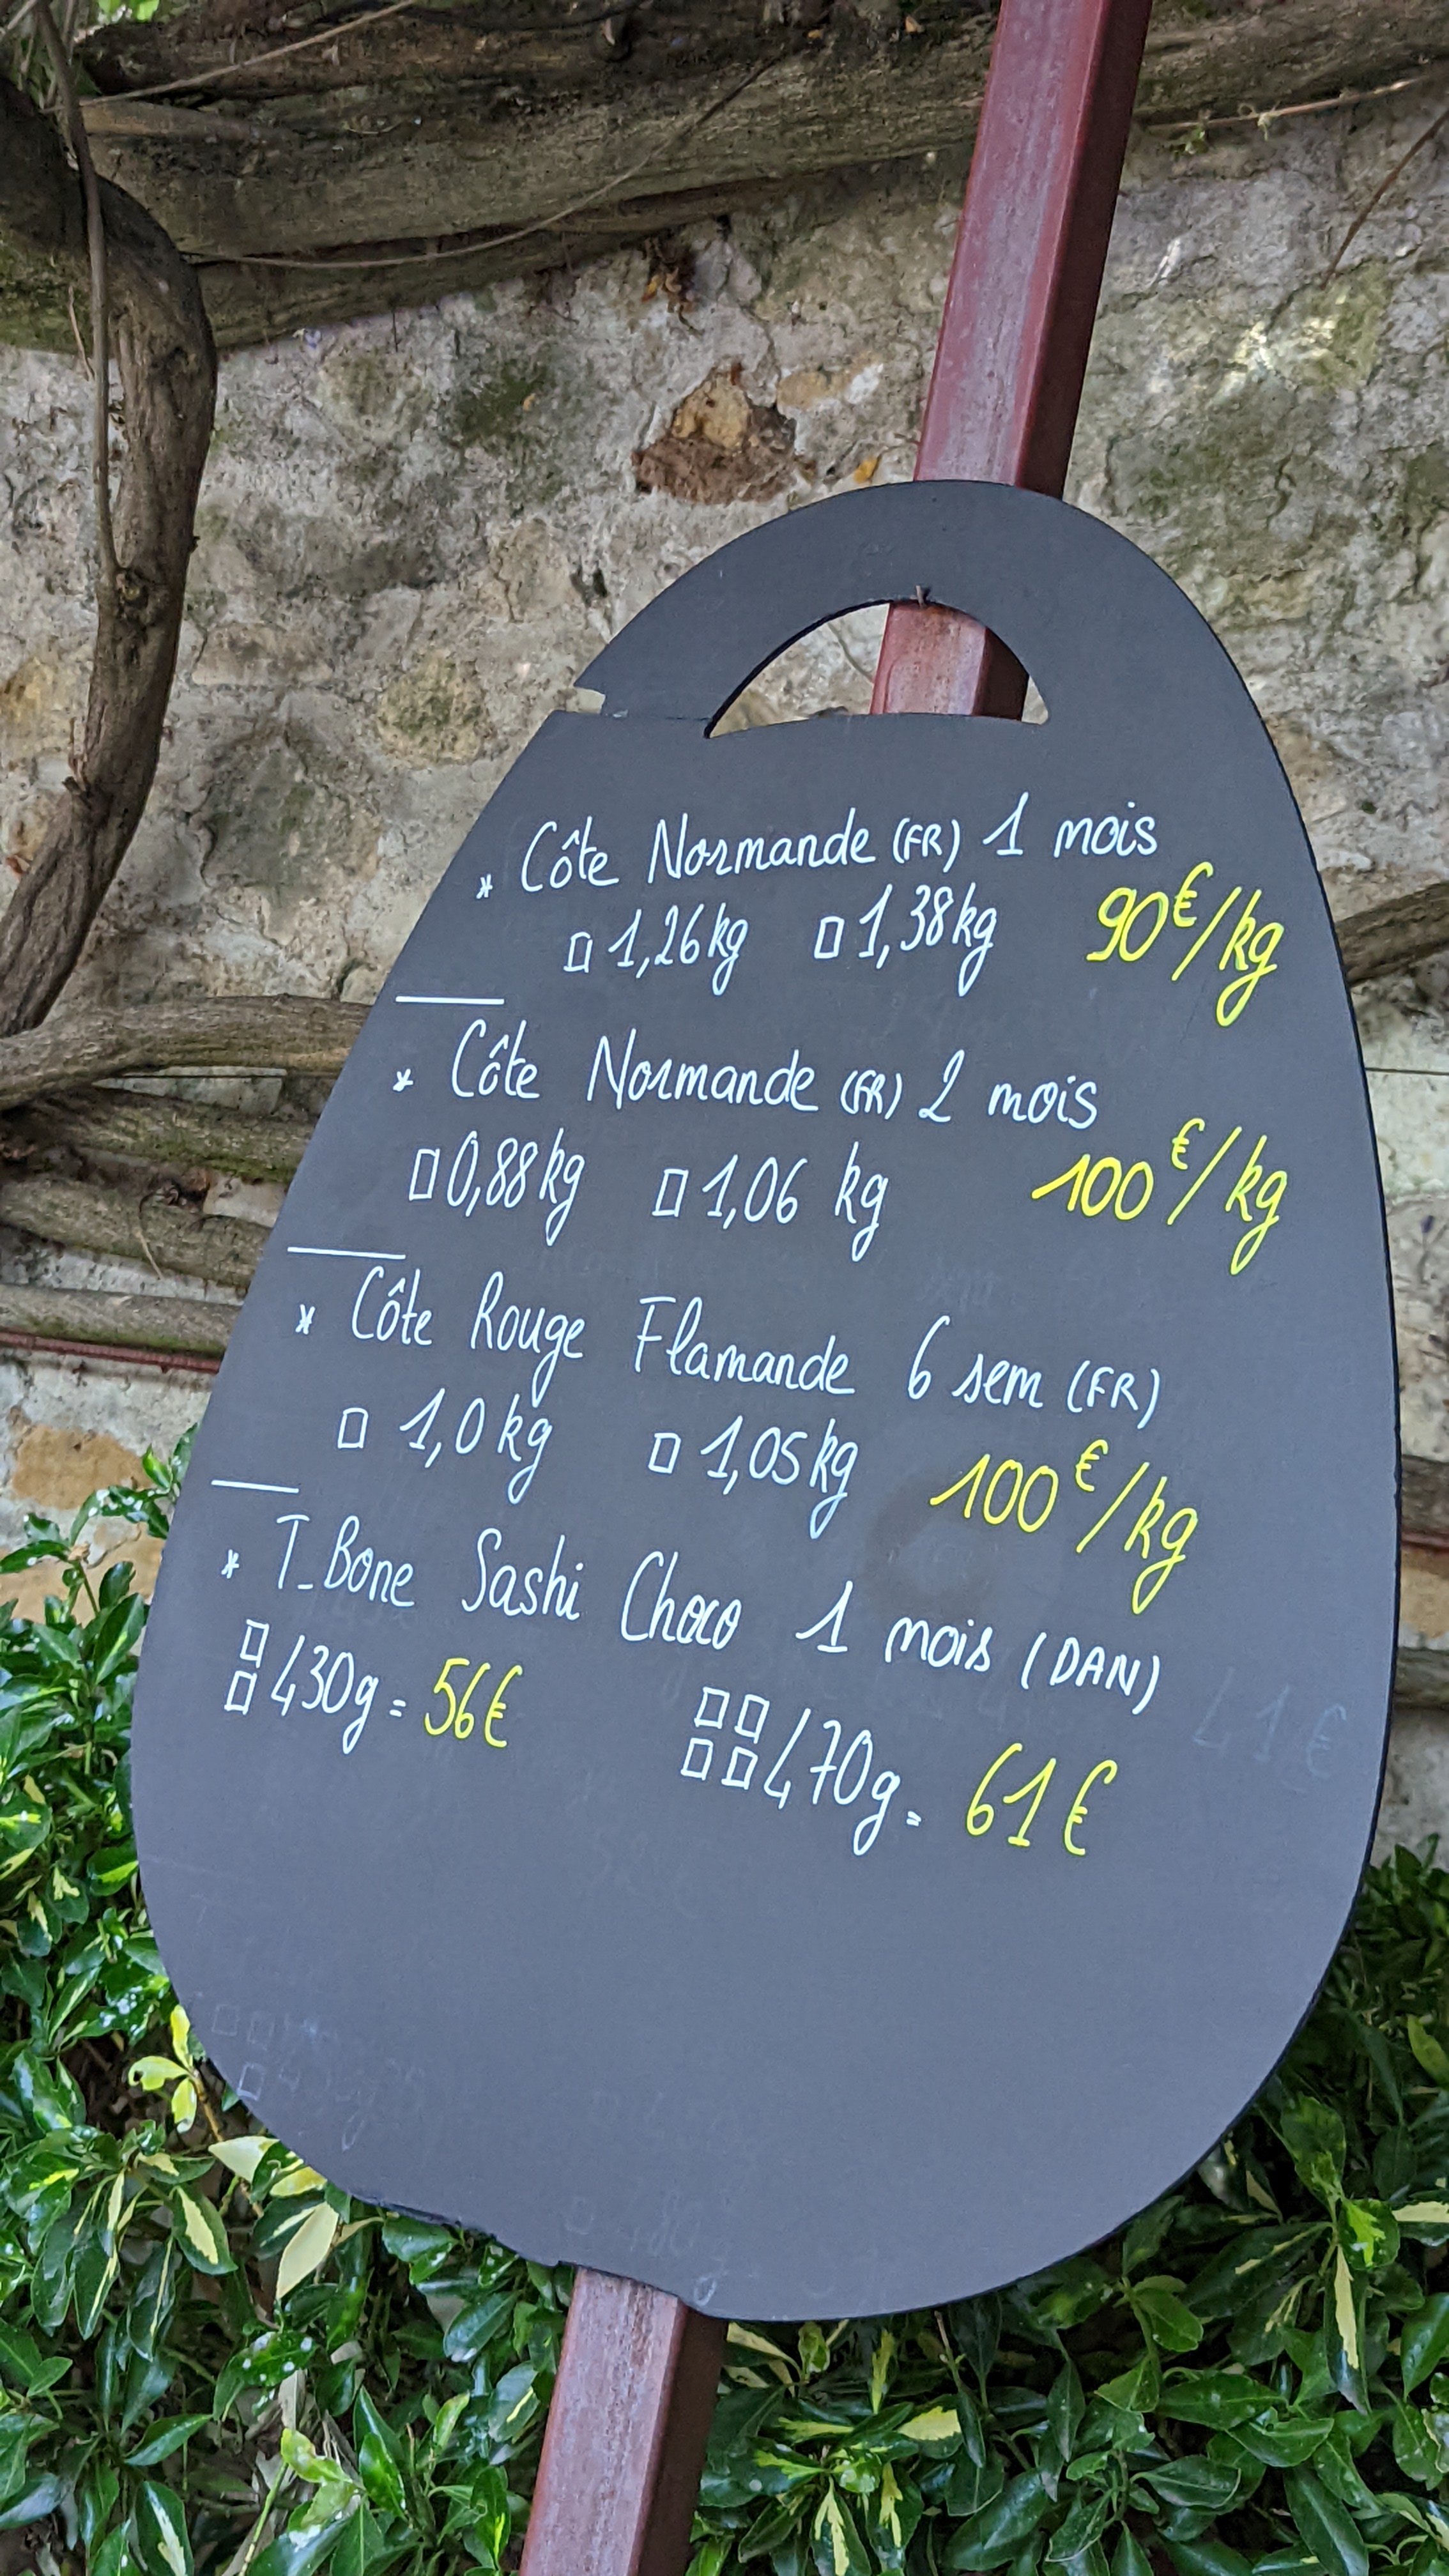 * Côte Normande (FR) 1 mois
□ 1,26kg □ 1,38kg 90€/kg
* Côte Normande (FR) 2 mois
□ 0,88kg □ 1,06 kg 100€/kg
* Côte Rouge Flamande 6 sem (FR)
□ 1,0kg □ 1,05kg 100€/kg
* T-Bone Sashi Choco 1 mois (DAN)
□□ 430g = 56€ □□□□ 470g = 61€